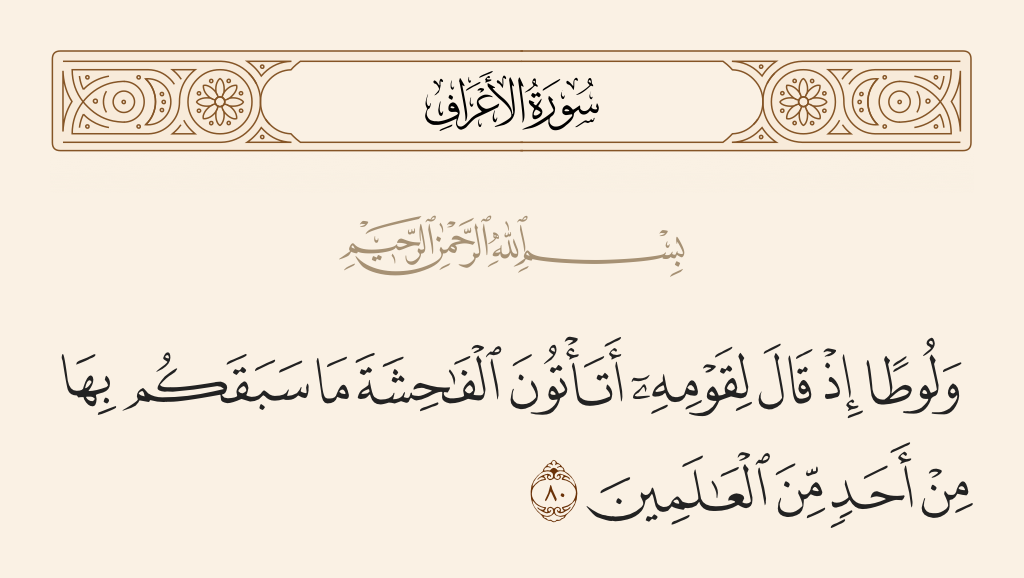 سُورَةُ الأَعْرَافِ
بِسْمِ ٱللَّهِ ٱلرَّحْمَٰنِ ٱلرَّحِيمِ
وَلُوطًا إِذْ قَالَ لِقَوْمِهِۦٓ أَتَأْتُونَ ٱلْفَـٰحِشَةَ مَا سَبَقَكُم بِهَا
مِنْ أَحَدٍ مِّنَ ٱلْعَـٰلَمِينَ ٨٠